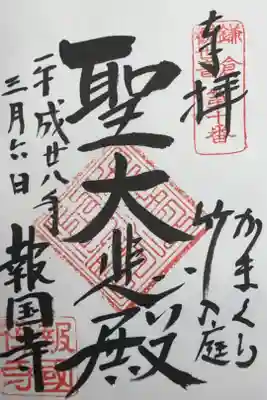 奉拝
鎌倉
十番
かまくら
竹の庭
聖大悲殿
平成廿八年
三月六日
報国寺
報國